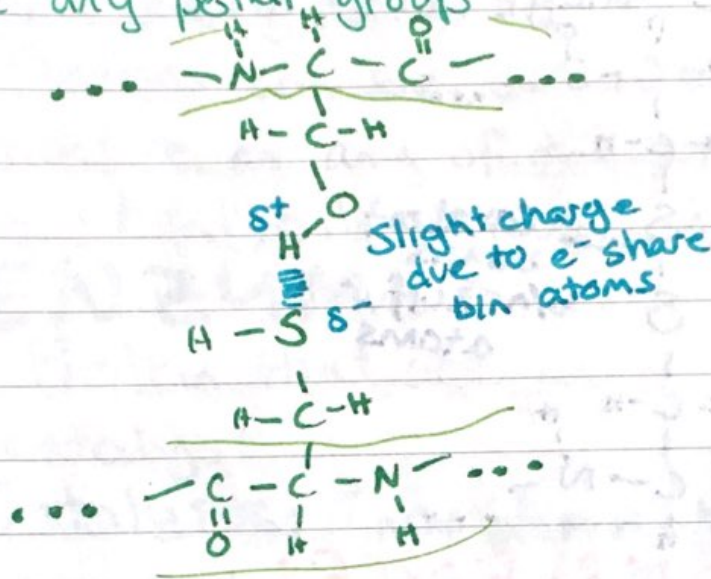 any polar groups
H H O
... — N — C — C — ...
H – C – H
O
δ+
H
Slight charge
due to e⁻ share
b/n atoms
H – S δ-
H – C – H
... — C – C – N — ...
O H H